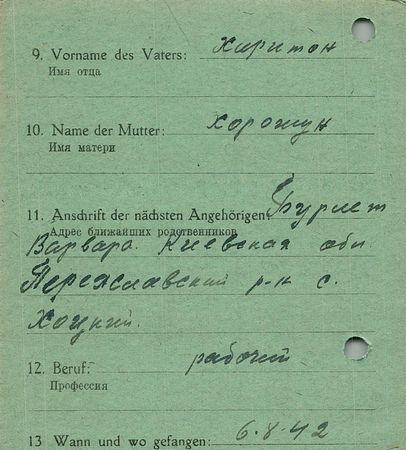 9. Vorname des Vaters: Харитон
Имя отца
10. Name der Mutter: Хорошун
Имя матери
11. Anschrift der nächsten Angehörigen: Бурмет
Адрес ближайших родственников
Варвара. Киевская обл.
Переяславский р-н с.
Хоцкий.
12. Beruf: рабочий
Профессия
13 Wann und wo gefangen: 6.8.42